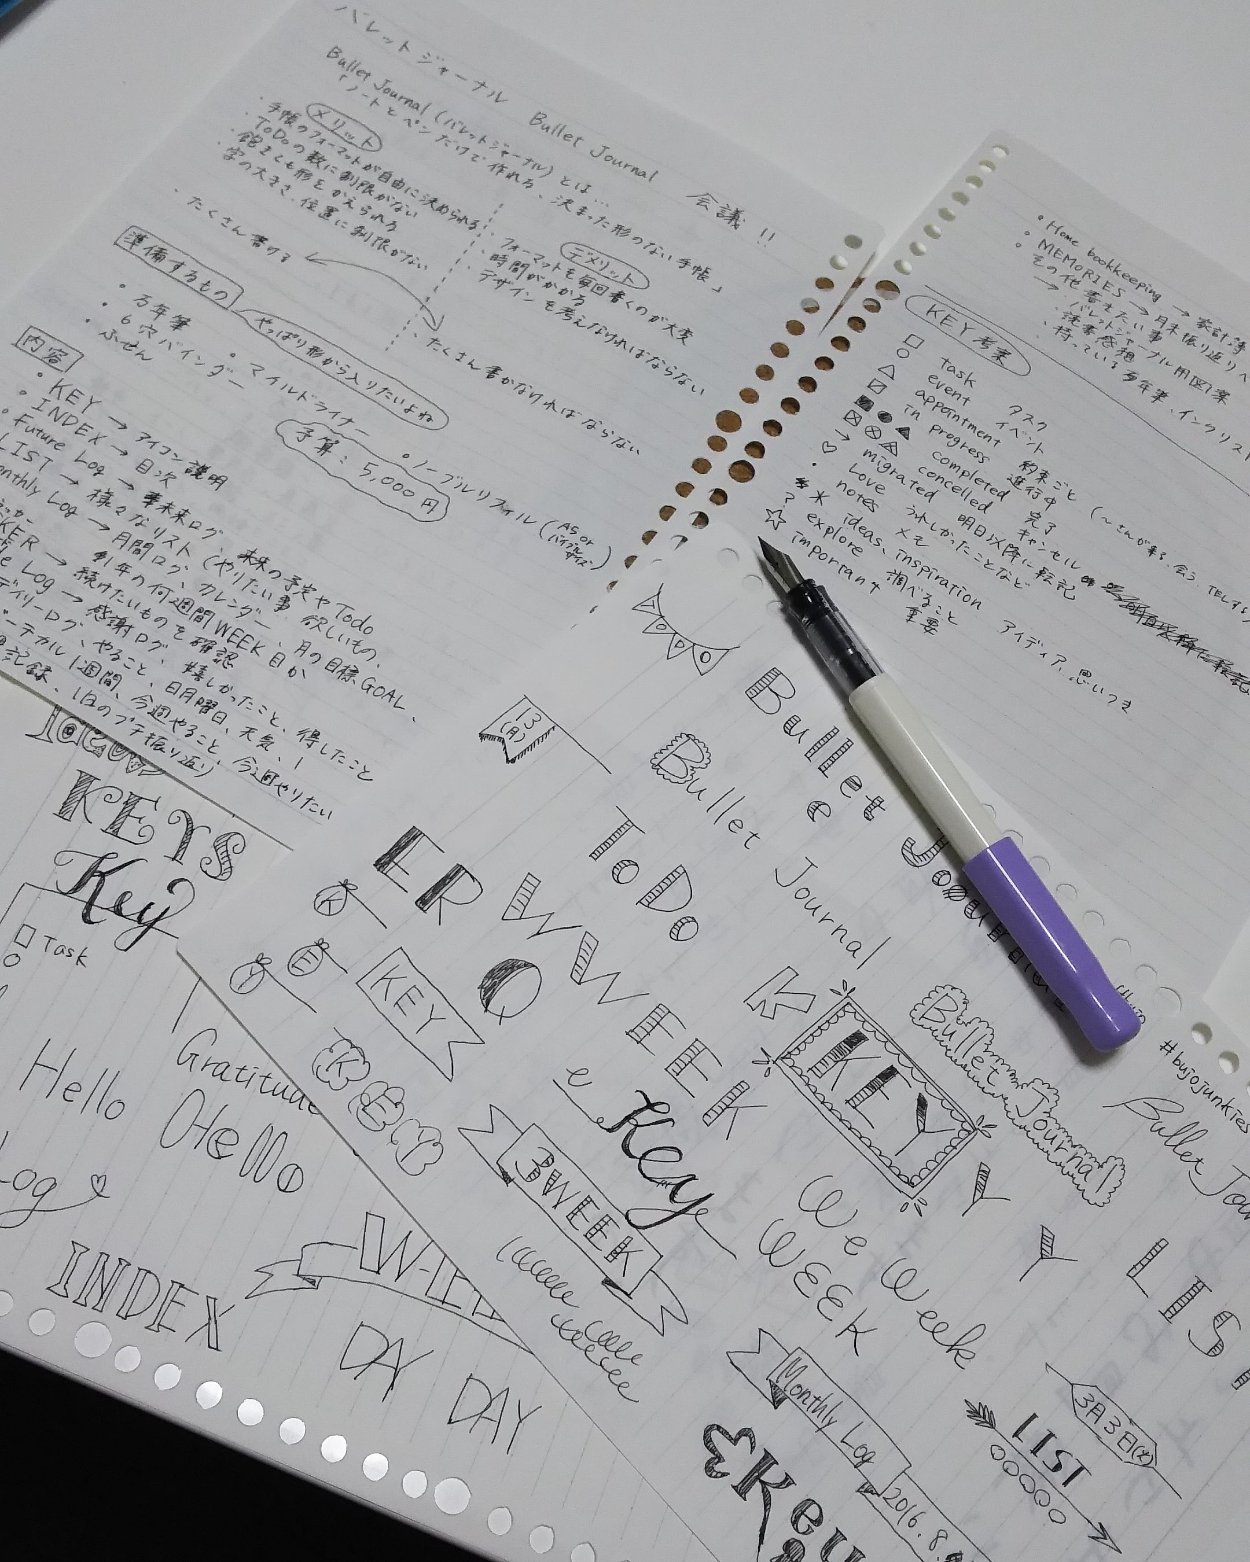 バレットジャーナル Bullet Journal 会議!!
Bullet Journal (バレットジャーナル) とは…
「ノートとペンだけで作れる、決まった形のない手帳」
メリット
・手帳のフォーマットが自由に決められる
・ToDoの数に制限がない
・飽きても形をかえられる
・字の大きさ、位置に制限がない
・たくさん書ける
デメリット
・フォーマットを毎回書くのが大変
・時間がかかる
・デザインを考えなければならない
・たくさん書かなければならない
準備するもの
やっぱり形から入りたいよね
・万年筆 ・マイルドライナー ・ノーブルリフィル (A5 or バイブルサイズ)
・6穴バインダー
・ふせん
予算:5,000円
内容
・KEY → アイコン説明
・INDEX → 目次
・Future Log → 未来ログ 未来の予定やTodo
LIST → 様々なリスト (やりたい事、欲しいもの、
onthly Log → 月間ログ、カレンダー、月の目標GOAL、
KER → 続けたいものを確認
e Log → 感謝ログ、嬉しかったこと、得したこと
デイリーログ、やること、日月曜日、天気、
ーチカル1週間、今週やること、今週やりたい
記録、1日のプチ振り返り)
・Home bookkeeping → 家計簿
・MEMORIES → 月末振り返り
・その他書きたい事
→ バレットジャーナル用図案
・読書感想
・持っている万年筆、インクリスト
KEY考案
□ task タスク
○ event イベント
△ appointment 約束ごと
in progress 進行中
completed 完了
cancelled キャンセル
→ migrated 明日以降に転記
♡ Love うれしかったことなど
・ notes メモ
* ideas, inspiration アイディア、思いつき
? explore 調べること
☆ important 重要
3(月)
Bullet Journal
Bullet Journal
e
ToDo
ER
WWEEK
K
E
Y
KEY
Q
K
KEY
KEY
Bullet Journal
#bujojunkies
Bullet Jou
e
Key
3WEEK
We Week
WEEK
Y Y LIS
Monthly Log
2016.8.
3月3日(火)
LIST
Key
KEYS
Key
□ Task
○
Gratitude
Hello
Hello
Log
INDEX
DAY DAY